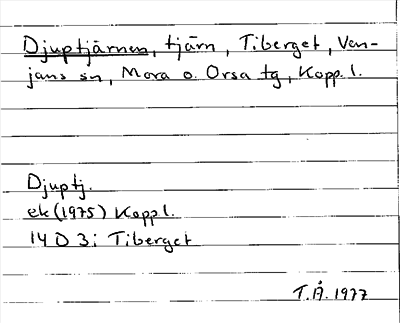 Djuptjärnen, tjärn, Tiberget, Ven-
jans sn, Mora o. Orsa tg, Kopp. l.
Djuptj.
ek (1975) Kopp l.
14 D 3 i Tiberget
T.Å. 1977